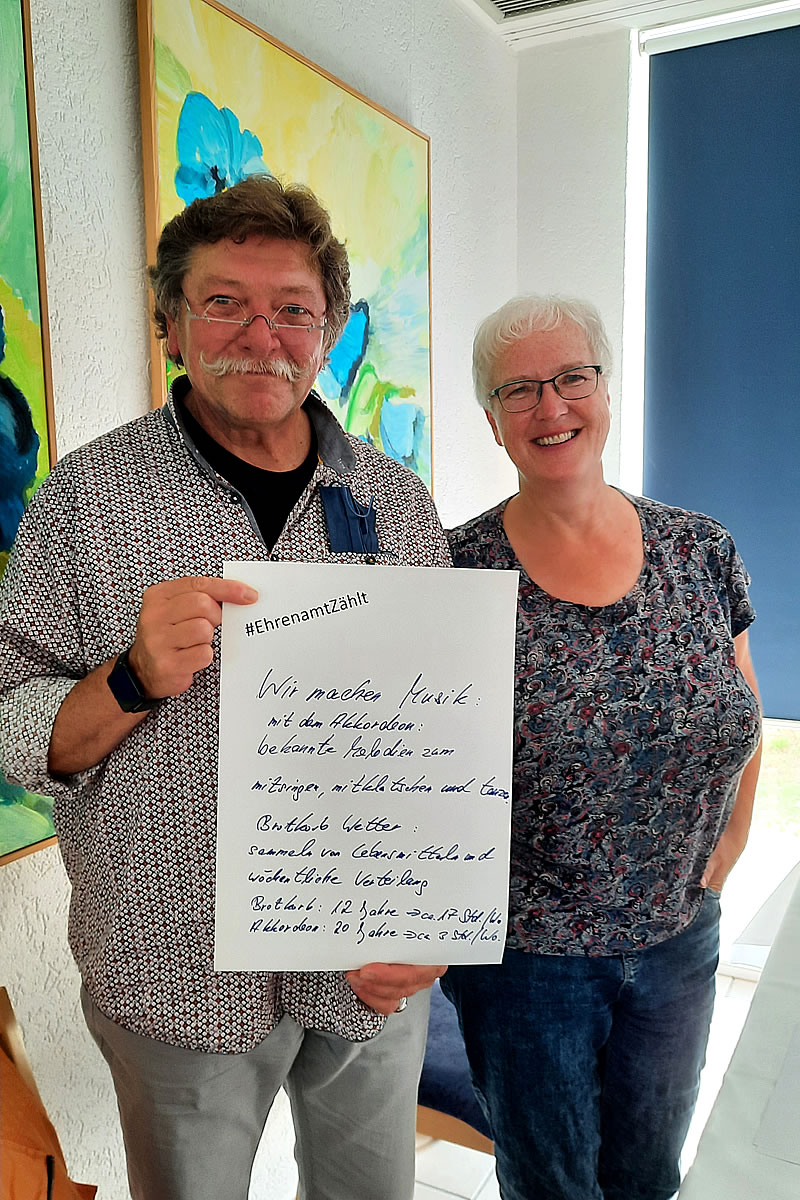 #EhrenamtZählt
Wir machen Musik:
mit dem Akkordeon:
bekannte Melodien zum
mitsingen, mitklatschen und tanzen
Brotkorb Wetter:
sammeln von Lebensmitteln und
wöchentliche Verteilung
Brotkorb: 12 Jahre => ca. 17 Std./Wo.
Akkordeon: 20 Jahre => ca 3 Std./Wo.